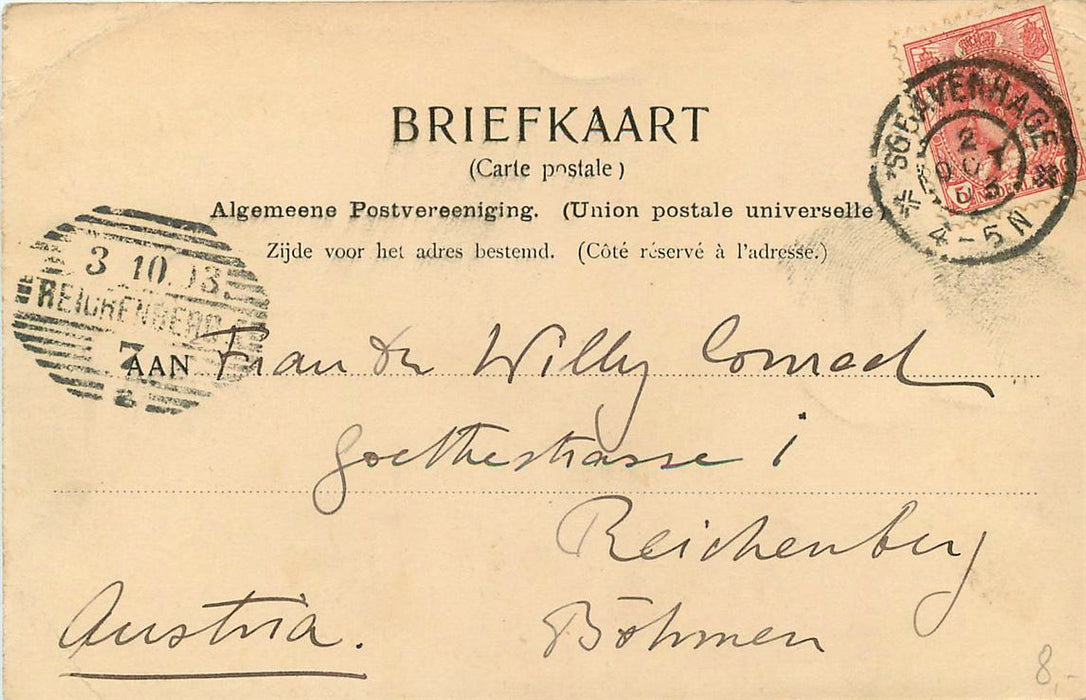 BRIEFKAART
(Carte postale)
Algemeene Postvereeniging. (Union postale universelle)
Zijde voor het adres bestemd. (Côté réservé à l'adresse.)
'SGRAVENHAGE
2
4-5N
3 10 03
REICHENBERG
2
AAN Frau Dr Willy Conrad
Goethestrasse 1
Reichenberg
Austria. Böhmen
8,-